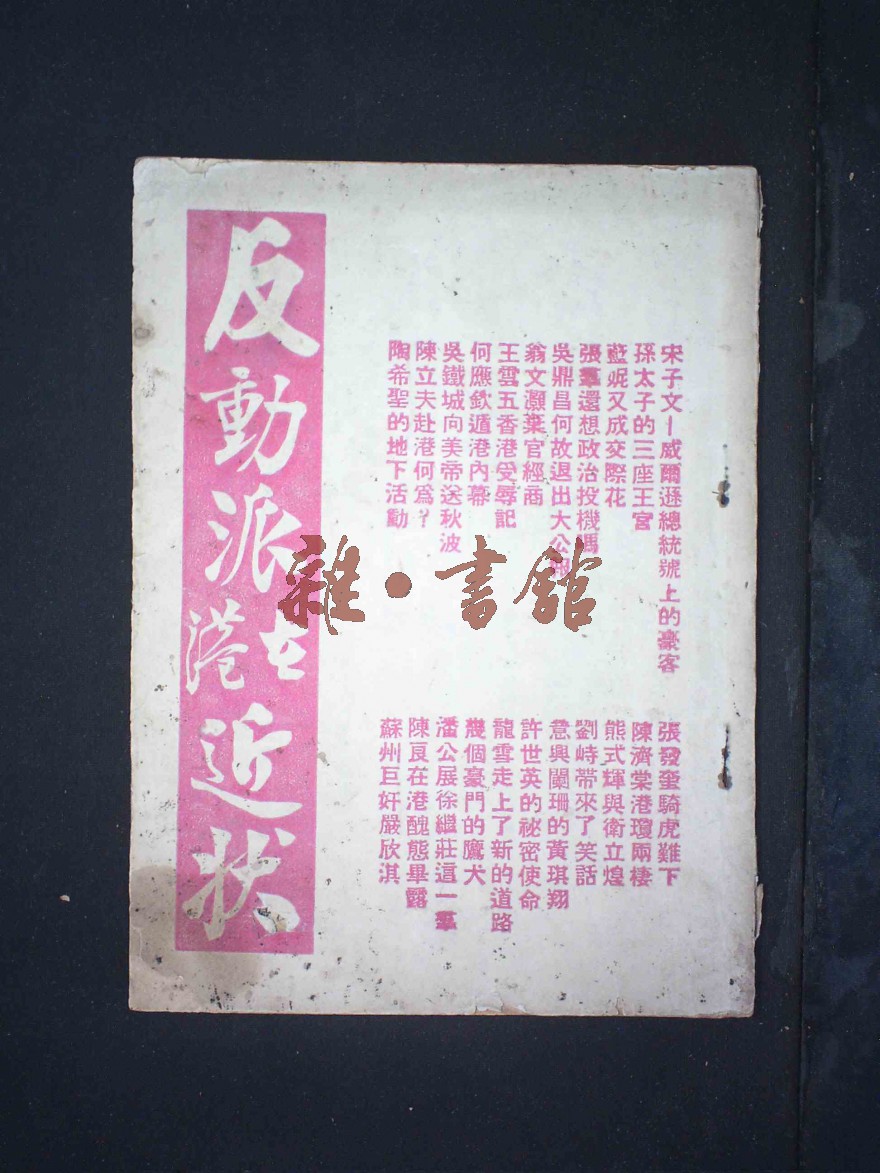 宋子文—威爾遜總統號上的豪客
孫太子的三座王宮
藍妮又成交際花
張羣還想政治投機嗎
吳鼎昌何故退出大公報
翁文灝棄官經商
王雲五香港受辱記
何應欽遁港內幕
吳鐵城向美帝送秋波
陳立夫赴港何爲？
陶希聖的地下活動
張發奎騎虎難下
陳濟棠港瓊兩棲
熊式輝與衛立煌
劉峙帶來了笑話
意興闌珊的黃琪翔
許世英的祕密使命
龍雲走上了新的道路
幾個豪門的鷹犬
潘公展徐繼莊這一羣
陳良在港醜態畢露
蘇州巨奸嚴欣淇
反動派在港近狀
雜·書館